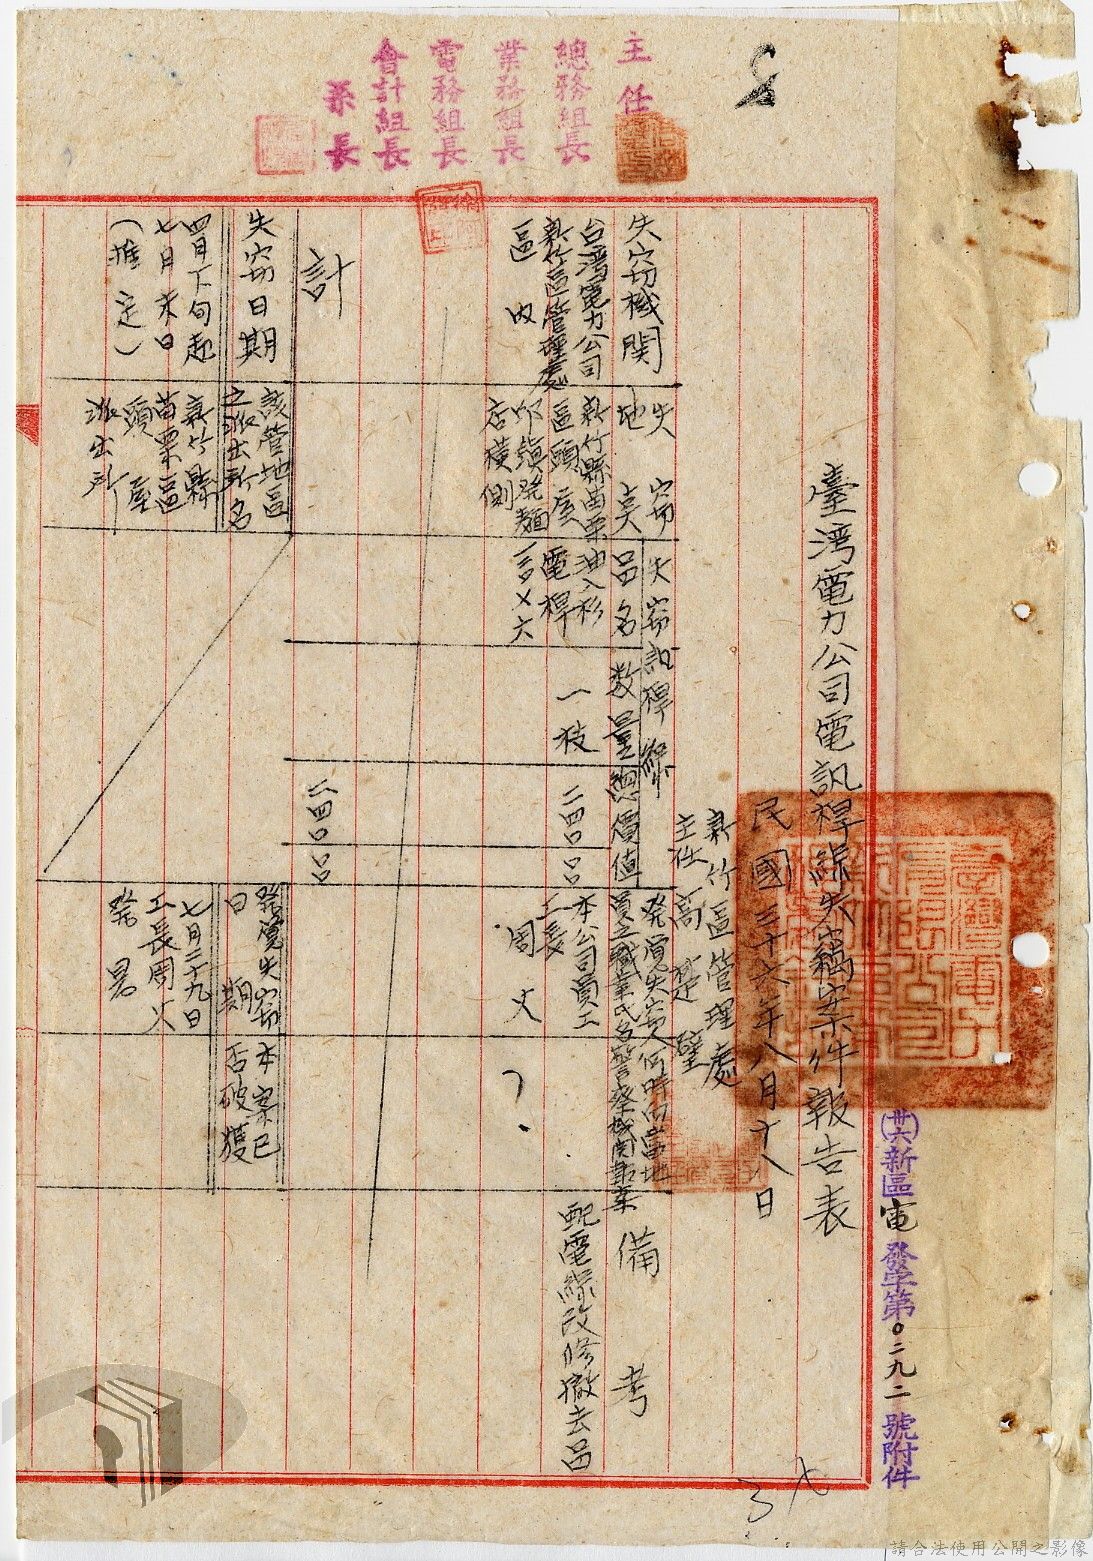 (卅六)新區電發字第0二九二號附件
臺灣電力公司電訊桿線失竊案件報告表
民國三十六年八月十八日
新竹區管理處
主任
主任
總務組長
業務組長
電務組長
會計組長
系長
失窃機関
台湾電力公司
新竹區管理處
區內
失窃地点
新竹縣苗栗
區頭屋
店橫側
失窃訊桿線
品名
油入杉
電桿
数量
一枝
總價值
二四〇〇
發覚失窃人何時向當地
員之職業氏名警察機関報案
本公司員工
工長
周丈
?.
備考
配電線改修撤去品
計
二四〇〇
失窃日期
四月下旬起
七月末日
(推定)
該管地區
之派出所名
新竹縣
苗栗區
頭屋
派出所
發覚失窃
日期
七月二十九日
工長周丈
發見
本案已
否破獲
請合法使用公開之影像